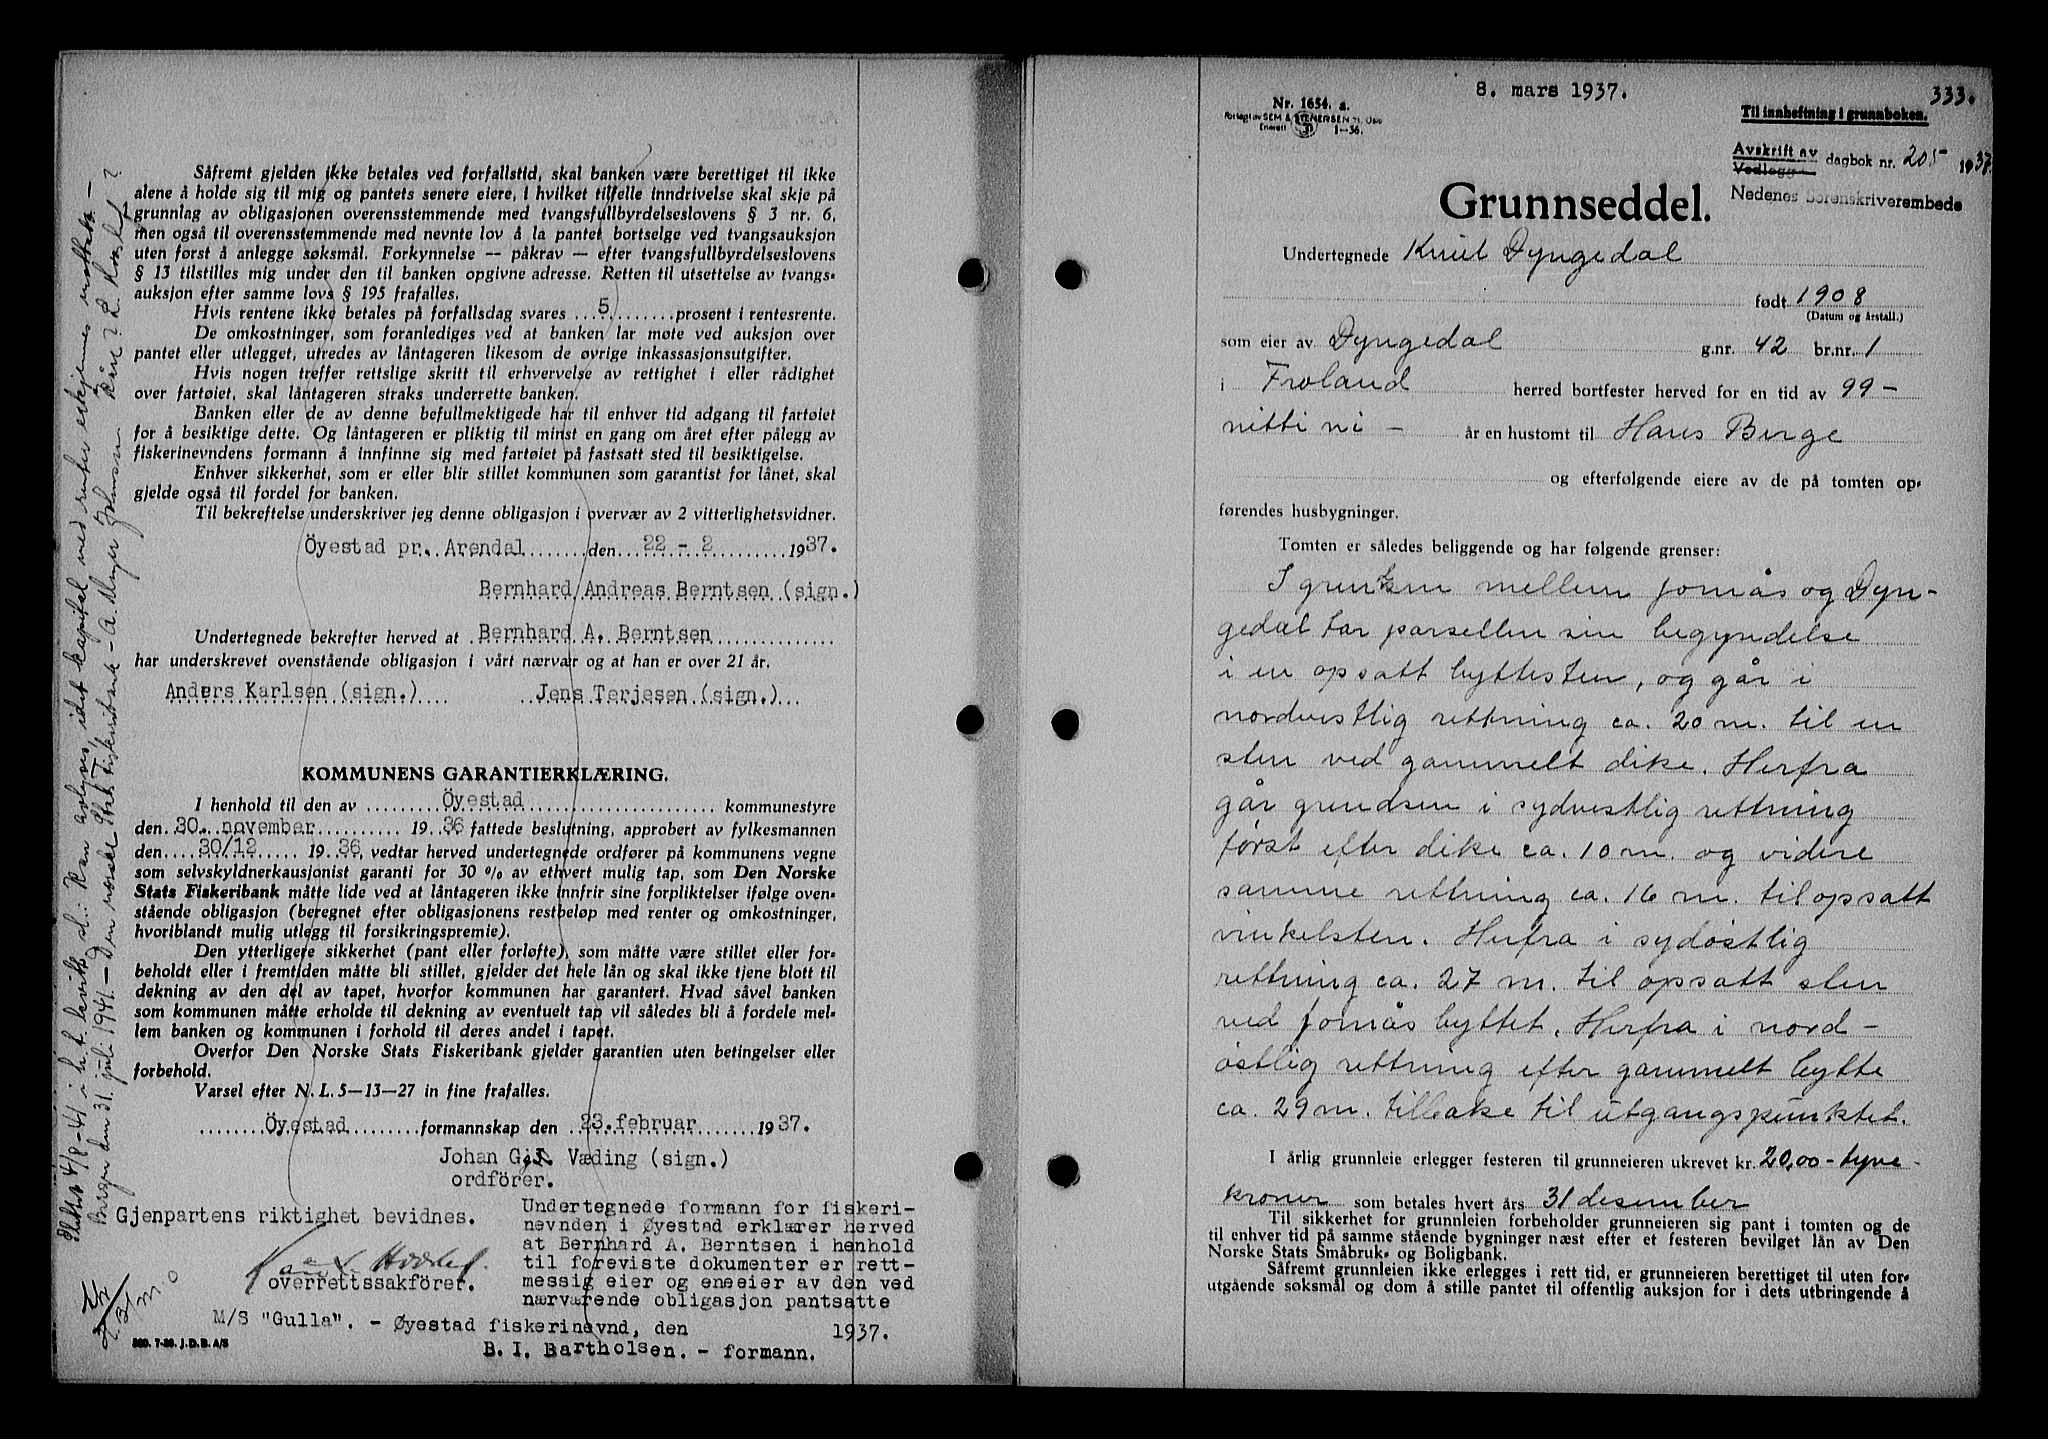 Såfremt gjelden ikke betales ved forfallstid, skal banken være berettiget til ikke
alene å holde sig til mig og pantets senere eiere, i hvilket tilfelle inndrivelse skal skje på
grunnlag av obligasjonen overensstemmende med tvangsfullbyrdelseslovens § 3 nr. 6,
men også til overensstemmende med nevnte lov å la pantet bortselge ved tvangsauksjon
uten først å anlegge søksmål. Forkynnelse — påkrav — efter tvangsfullbyrdelseslovens
§ 13 tilstilles mig under den til banken opgivne adresse. Retten til utsettelse av tvangs-
auksjon efter samme lovs § 195 frafalles.
Hvis rentene ikke betales på forfallsdag svares 5 prosent i rentesrente.
De omkostninger, som foranlediges ved at banken lar møte ved auksjon over
pantet eller utlegget, utredes av låntageren likesom de øvrige inkassasjonsutgifter.
Hvis nogen treffer rettslige skritt til erhvervelse av rettighet i eller rådighet
over fartøiet, skal låntageren straks underrette banken.
Banken eller de av denne befullmektigede har til enhver tid adgang til fartøiet
for å besiktige dette. Og låntageren er pliktig til minst en gang om året efter pålegg av
fiskerinevndens formann å innfinne sig med fartøiet på fastsatt sted til besiktigelse.
Enhver sikkerhet, som er eller blir stillet kommunen som garantist for lånet, skal
gjelde også til fordel for banken.
Til bekreftelse underskriver jeg denne obligasjon i overvær av 2 vitterlighetsvidner.
Öyestad pr. Arendal den 22 - 2 1937.
Bernhard Andreas Berntsen (sign.)
Undertegnede bekrefter herved at Bernhard A. Berntsen
har underskrevet ovenstående obligasjon i vårt nærvær og at han er over 21 år.
Anders Karlsen (sign.) Jens Terjesen (sign.)
KOMMUNENS GARANTIERKLÆRING.
I henhold til den av Öyestad kommunestyre
den 30. november 1936 fattede beslutning, approbert av fylkesmannen
den 30/12 1936, vedtar herved undertegnede ordfører på kommunens vegne
som selvskyldnerkausjonist garanti for 30 % av ethvert mulig tap, som Den Norske
Stats Fiskeribank måtte lide ved at låntageren ikke innfrir sine forpliktelser ifølge oven-
stående obligasjon (beregnet efter obligasjonens restbeløp med renter og omkostninger,
hvoriblandt mulig utlegg til forsikringspremie).
Den ytterligere sikkerhet (pant eller forløfte), som måtte være stillet eller for-
beholdt eller i fremtiden måtte bli stillet, gjelder det hele lån og skal ikke tjene blott til
dekning av den del av tapet, hvorfor kommunen har garantert. Hvad såvel banken
som kommunen måtte erholde til dekning av eventuelt tap vil således bli å fordele mel-
lem banken og kommunen i forhold til deres andel i tapet.
Overfor Den Norske Stats Fiskeribank gjelder garantien uten betingelser eller
forbehold.
Varsel efter N. L. 5—13—27 in fine frafalles.
Öyestad formannskap den 23. februar 1937.
Johan G. Væding (sign.)
ordförer.
Gjenpartens riktighet bevidnes.
overrettssakförer.
Undertegnede formann for fiskeri-
nevnden i Øyestad erklærer herved
at Bernhard A. Berntsen i henhold
til foreviste dokumenter er rett-
messig eier og eneeier av den ved
nærværende obligasjon pantsatte
M/S "Gulla". - Øyestad fiskerinevnd, den 1937.
B. I. Bartholsen. - formann.
Slettet 4/8-41 i h. t. bevitt sd.: Kan avlyses, idet kapital med renter erkjennes mottatt. -
Bergen den 31. juli 1941. - Den norske Stats Fiskeribank - A. Meyer Johnsen
8. mars 1937. 333.
Nr. 1654. a.
Forlagt av SEM & STENERSEN Oslo
Enerett 1-36.
Til innheftning i grunnboken.
Avskrift av
Vedlegg
dagbok nr. 205 1937
Nedenes Sorenskriverembede
Grunnseddel.
Undertegnede Knut Dyngedal
født 1908
(Datum og årstall.)
som eier av Dyngedal g.nr. 42 br.nr. 1
i Froland herred bortfester herved for en tid av 99 -
nitti ni - år en hustomt til Hans Berge
og efterfølgende eiere av de på tomten op-
førendes husbygninger.
Tomten er således beliggende og har følgende grenser:
I grensene mellem Jomås og Dyn-
gedal tar parsellen sin begyndelse
i en opsatt byttesten, og går i
nordvestlig rettning ca. 20 m. til en
sten ved gammelt dike. Herfra
går grendsen i sydvestlig rettning
først efter dike ca. 10 m. og videre
samme rettning ca. 16 m. til opsatt
vinkelsten. Herfra i sydøstlig
rettning ca. 27 m. til opsatt sten
ved Jomås byttet. Herfra i nord-
østlig rettning efter gammelt bytte
ca. 29 m. tilbake til utgangspunktet.
I årlig grunnleie erlegger festeren til grunneieren ukrevet kr. 20,00 - tyve
kroner som betales hvert års 31 desember
Til sikkerhet for grunnleien forbeholder grunneieren sig pant i tomten og de
til enhver tid på samme stående bygninger næst efter et festeren bevilget lån av Den
Norske Stats Småbruk- og Boligbank.
Såfremt grunnleien ikke erlegges i rett tid, er grunneieren berettiget til uten for-
utgående søksmål og dom å stille pantet til offentlig auksjon for i dets utbringende å